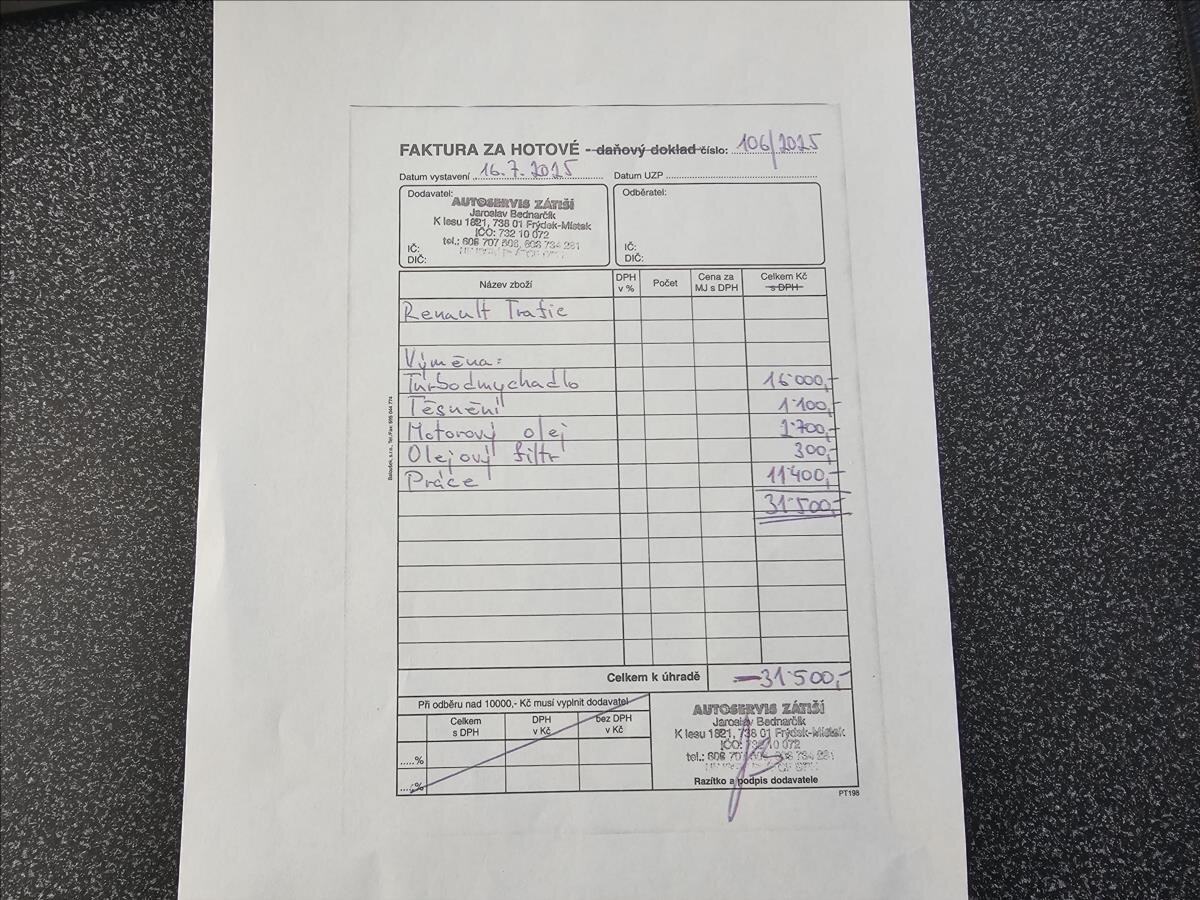 FAKTURA ZA HOTOVÉ - daňový doklad číslo: 106/2025
Datum vystavení 16.7.2025 Datum UZP
Dodavatel: Odběratel:
AUTOSERVIS ZÁTIŠÍ
Jaroslav Bednarčík
K lesu 1821, 738 01 Frýdek-Místek
IČO: 732 10 072
tel.: 608 707 508, 608 734 281
IČ: IČ:
DIČ: DIČ:
Název zboží DPH v % Počet Cena za MJ s DPH Celkem Kč s DPH
Renault Trafic
Výměna:
Turbodmychadlo 16 000,-
Těsnění 1 100,-
Motorový olej 2 700,-
Olejový filtr 300,-
Práce 11 400,-
31 500,-
Celkem k úhradě 31 500,-
Při odběru nad 10000,- Kč musí vyplnit dodavatel
Celkem s DPH DPH v Kč bez DPH v Kč
.....%
.....%
AUTOSERVIS ZÁTIŠÍ
Jaroslav Bednarčík
K lesu 1821, 738 01 Frýdek-Místek
IČO: 732 10 072
tel.: 608 707 508, 608 734 281
Razítko a podpis dodavatele
PT198